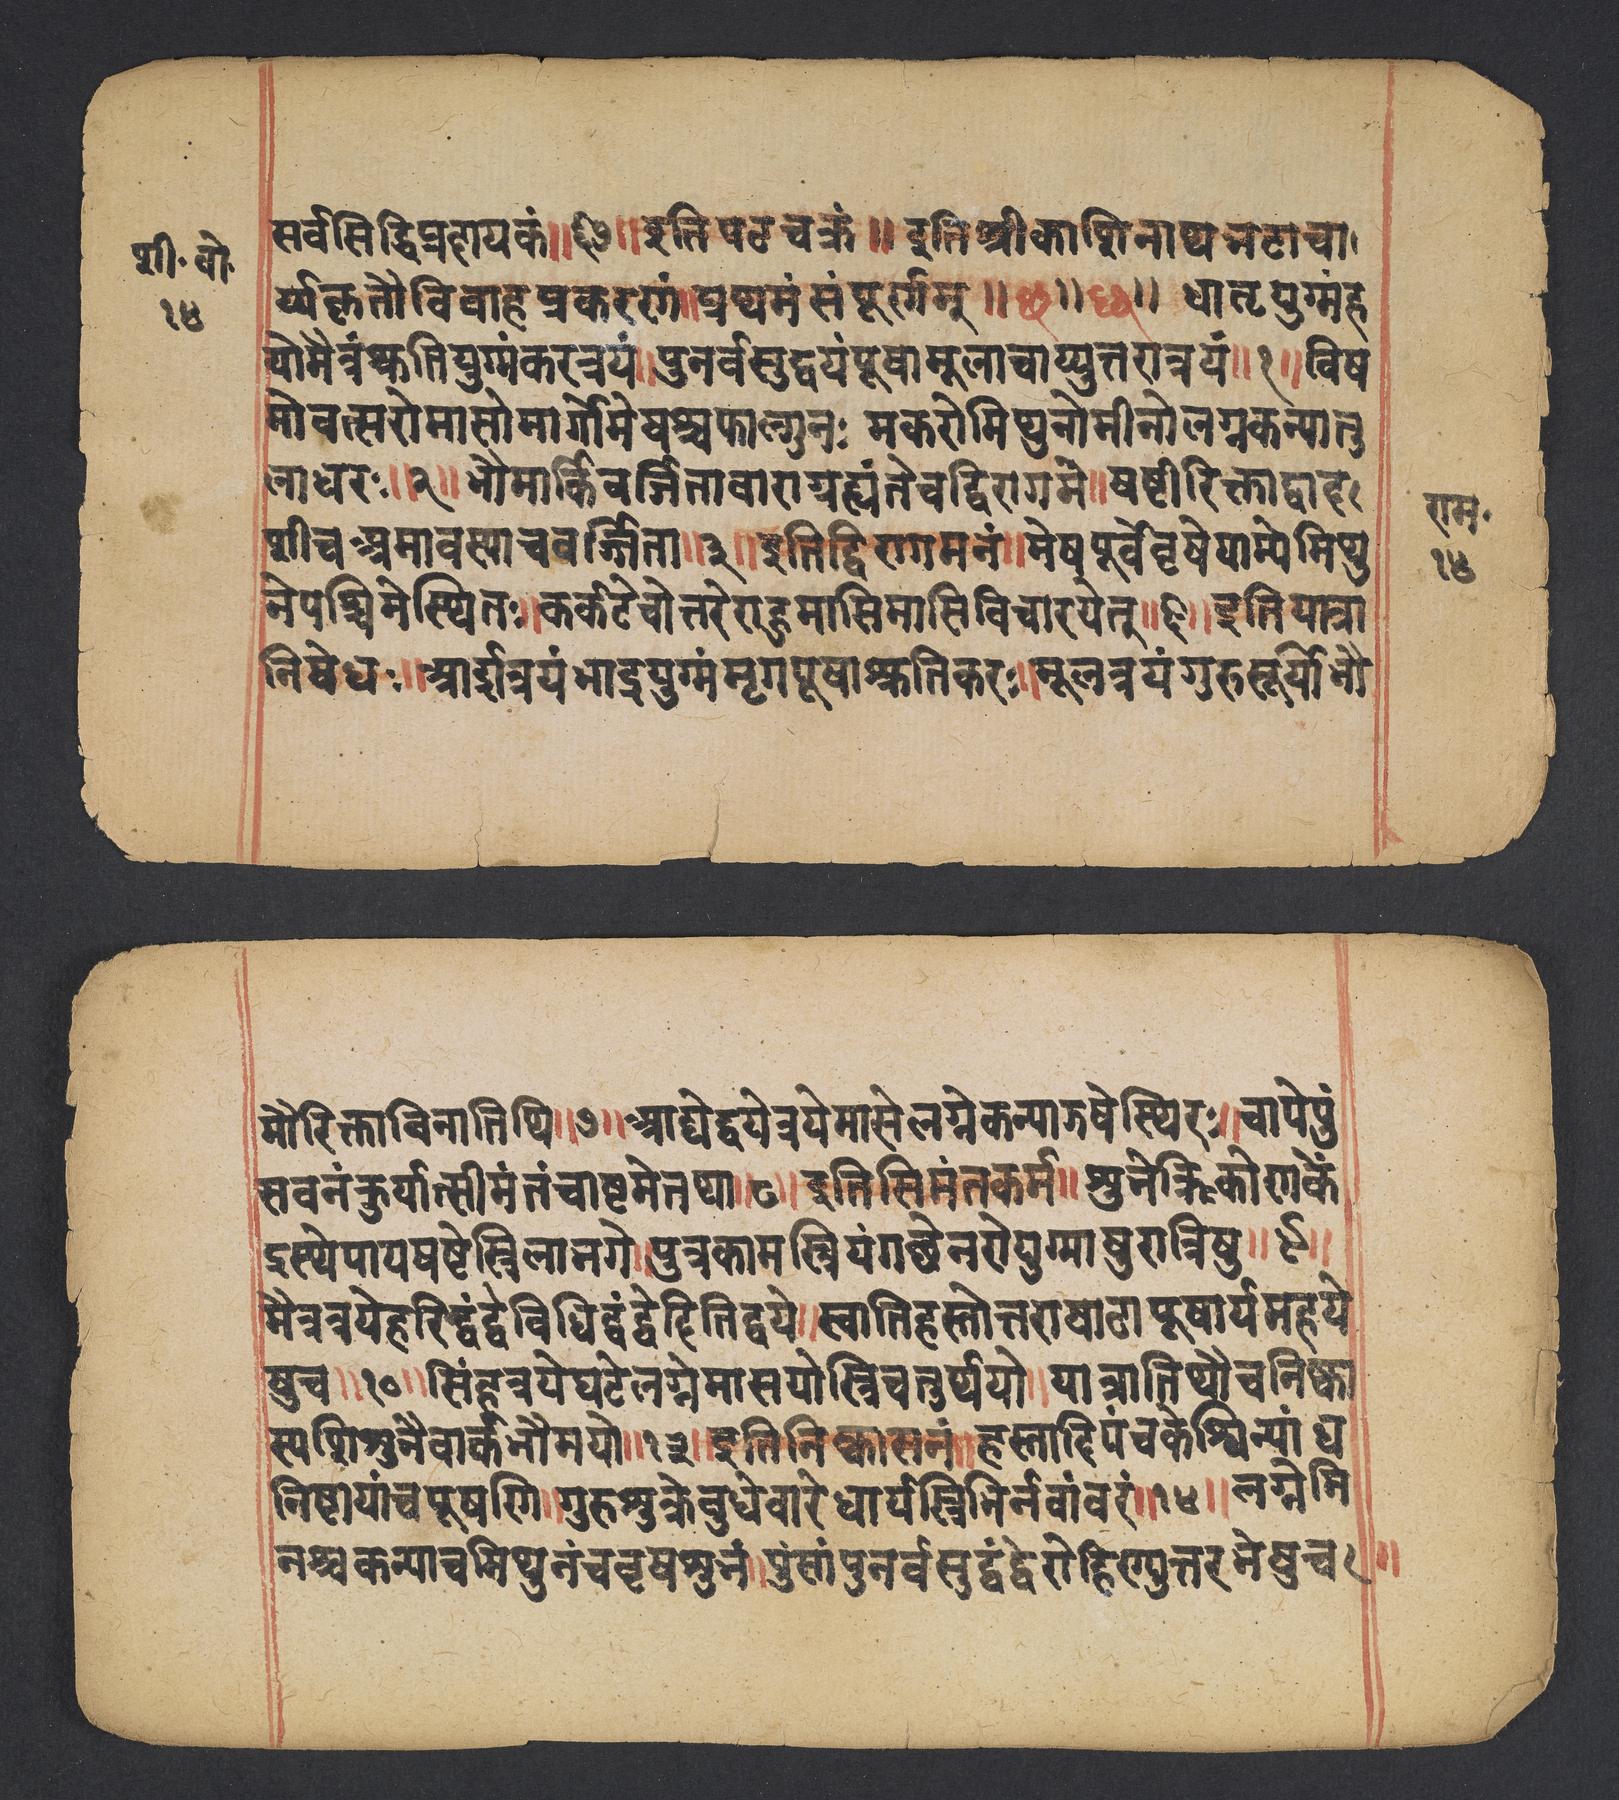 सर्वसिद्धिप्रदायकं॥ ६७॥ इति पट चक्रं॥ इति श्रीकाशिनाथ भटाचा
शी. बो.
१४
र्य्यकृतौ विवाह प्रकररणं॥ प्रथमं संपूर्णम्॥ छ॥ छ॥ धातृयुग्मंह
योमैत्रंश्रुतियुग्मंकरत्रयं॥ पुनर्वसुद्वयंपूषामूलाचाप्युत्तरात्रयं॥ १॥ विष
मोवत्सरोमासोमार्गोमेषश्चफाल्गुनः मकरोमिथुनोमीनोलग्नकन्यातु
लाधरः॥ २॥ भौमार्किवर्जितावाराग्रह्यंतेचद्विरागमे॥ षष्टीरिक्ताद्वाद
राम.
१४
शीच अमावस्याचवर्ज्जिता॥ ३॥ इतिद्विरागमनं॥ मेषपूर्वेवृषेयाम्येमिथु
नेपश्चिमेस्थितः॥ कर्कटेचोत्तरेराहुमासिमासिविचारयेत्॥ ६॥ इतियात्रा
निषेधः॥ आर्द्रात्रयंभाद्रयुग्मंमृगपूषाश्रुतिकरः॥ मूलत्रयंगुरुसूर्योभौ
मौरिक्ताविनातिथि॥ ७॥ आद्येद्वयेत्रयेमासेलग्नेकन्याझषेस्थिरः॥ चापेपुं
सवनंकुर्यात्सीमंतंचाष्टमेतथा॥ ८॥ इतिसिमंतकर्म॥ शुभेत्रिकोणकें
द्रस्थेपापषष्टेत्रिलाभगे॥ पुत्रकामस्त्रियंगछेनरोयुग्माषुरात्रिषु॥ ९॥
मैत्रत्रयेहरिद्वंद्वेविधिद्वंद्वेदितिद्वये॥ स्वातिहस्तोत्तराषाढापूषार्यमहये
षुच॥ १०॥ सिंहत्रयेघटेलग्नेमासयोस्त्रिचतुर्थयो॥ यात्रातिथौचनिष्का
स्यशिशुनैवार्कभौमयो॥ १३॥ इतिनिष्कासनं॥ हस्तादिपंचकेश्विन्यांध
निष्टायांचपूषणि॥ गुरुशुक्रेबुधेवारेधार्यस्त्रिभिर्नवांवरं॥ १४॥ लग्नेमि
नश्चकन्याचमिथुनंचवृषशुभं॥ पुंसांपुनर्वसुद्वंद्वेरोहिण्युत्तरभेषुच॥